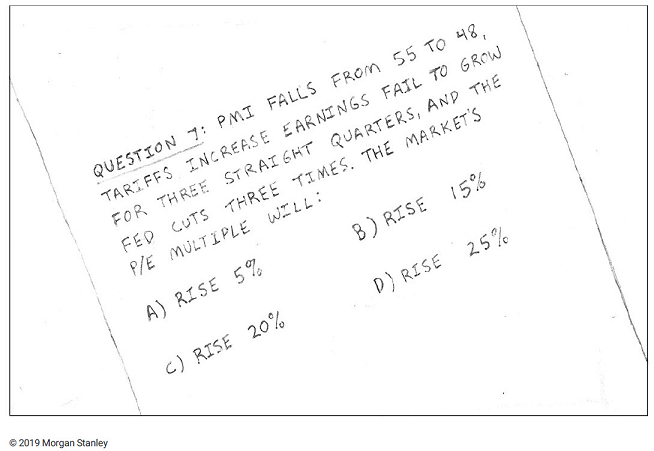 QUESTION 7: PMI FALLS FROM 55 TO 48,
TARIFFS INCREASE EARNINGS FAIL TO GROW
FOR THREE STRAIGHT QUARTERS, AND THE
FED CUTS THREE TIMES. THE MARKET'S
P/E MULTIPLE WILL:
A) RISE 5%
B) RISE 15%
C) RISE 20%
D) RISE 25%
© 2019 Morgan Stanley